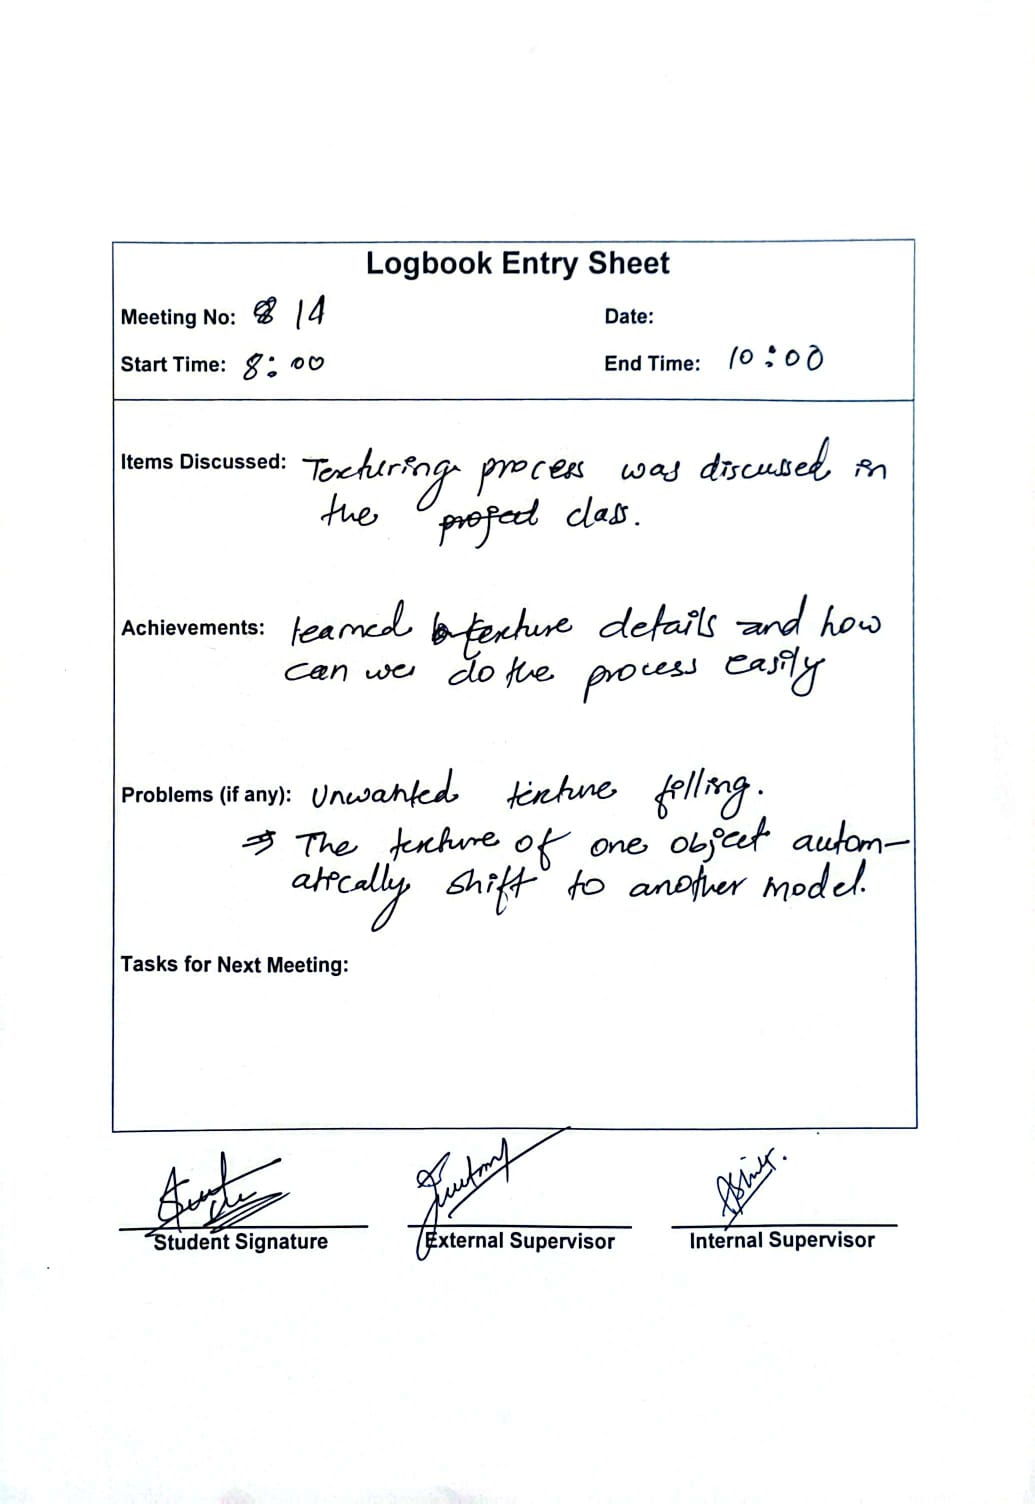 Logbook Entry Sheet
Meeting No: 14 Date:
Start Time: 8:00 End Time: 10:00
Items Discussed: Texturing process was discussed in
the project class.
Achievements: learned texture details and how
can we do the process easily
Problems (if any): Unwanted texture filling.
⇒ The texture of one object autom-
atically shift to another model.
Tasks for Next Meeting:
Student Signature External Supervisor Internal Supervisor